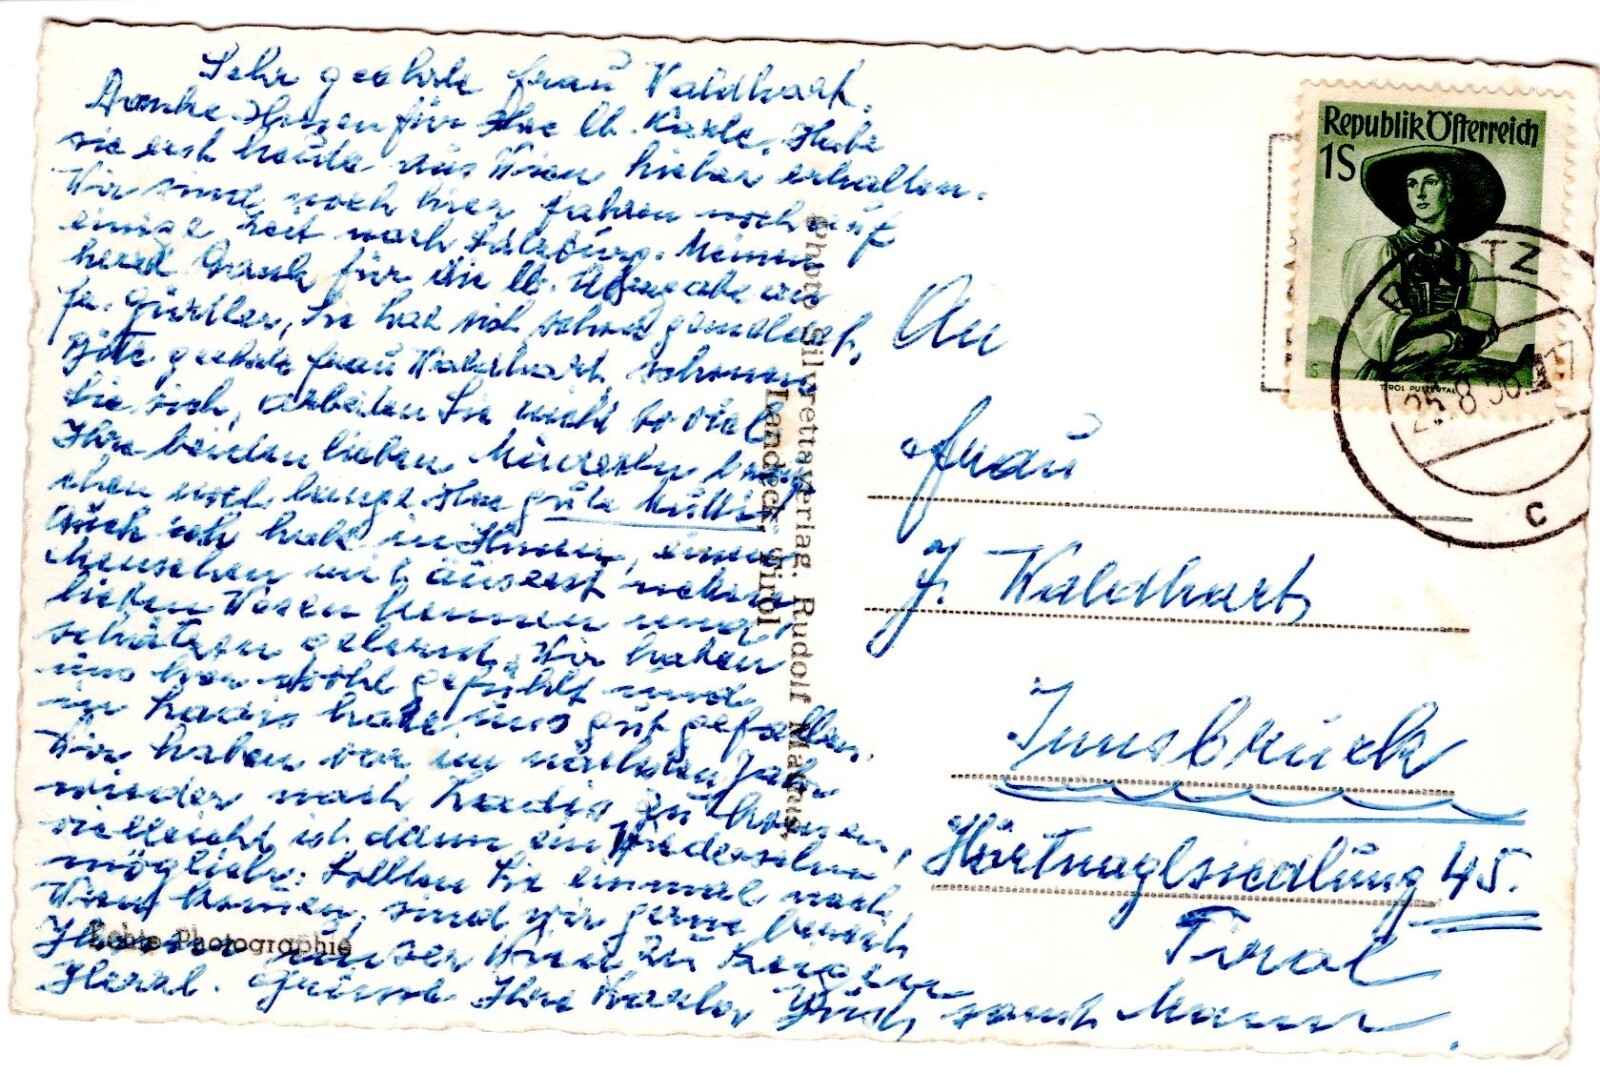 Sehr geehrte Frau Waldhart.
Danke Ihnen für Ihre lb. Karte. Habe
sie erst heute aus Wien hieher erhalten.
Wir sind noch hier fahren noch auf
einige Zeit nach Salzburg. Meinen
herzl Dank für die lb. Übergabe an
Fa. Gürtler, Sie hat sich schon gemeldet.
Gute geehrte Frau Waldhart, schonen
Sie sich, arbeiten Sie nicht so viel
Ihre beiden lieben Kinderln, brau
chen noch lange Ihre gute Mutti.
Auch ich habe in Ihnen, einen
Menschen mit äusserst
lieben Wesen kennen und
schätzen gelernt. Wir haben
uns hier wohl gefühlt und
in Ladis hat uns gut gefallen.
Wir haben vor im nächsten Jahr
wieder nach Ladis zu kommen,
vielleicht ist dann ein Wiedersehn
möglich. Sollten Sie einmal nach
Wien kommen, sind wir gerne bereit
Ihnen unser Wien zu zeigen
Herzl. Grüsse Ihre samt Mann.
Echte Photographie
Photo Silvrettaverlag. Rudolf Mathis,
Landeck, Tirol
Republik Österreich
1S
TIROL PUSTERTAL
25.8.56.
C
An
Frau
J. Waldhart
Innsbruck
Hörtnaglsiedlung 45.
Tirol